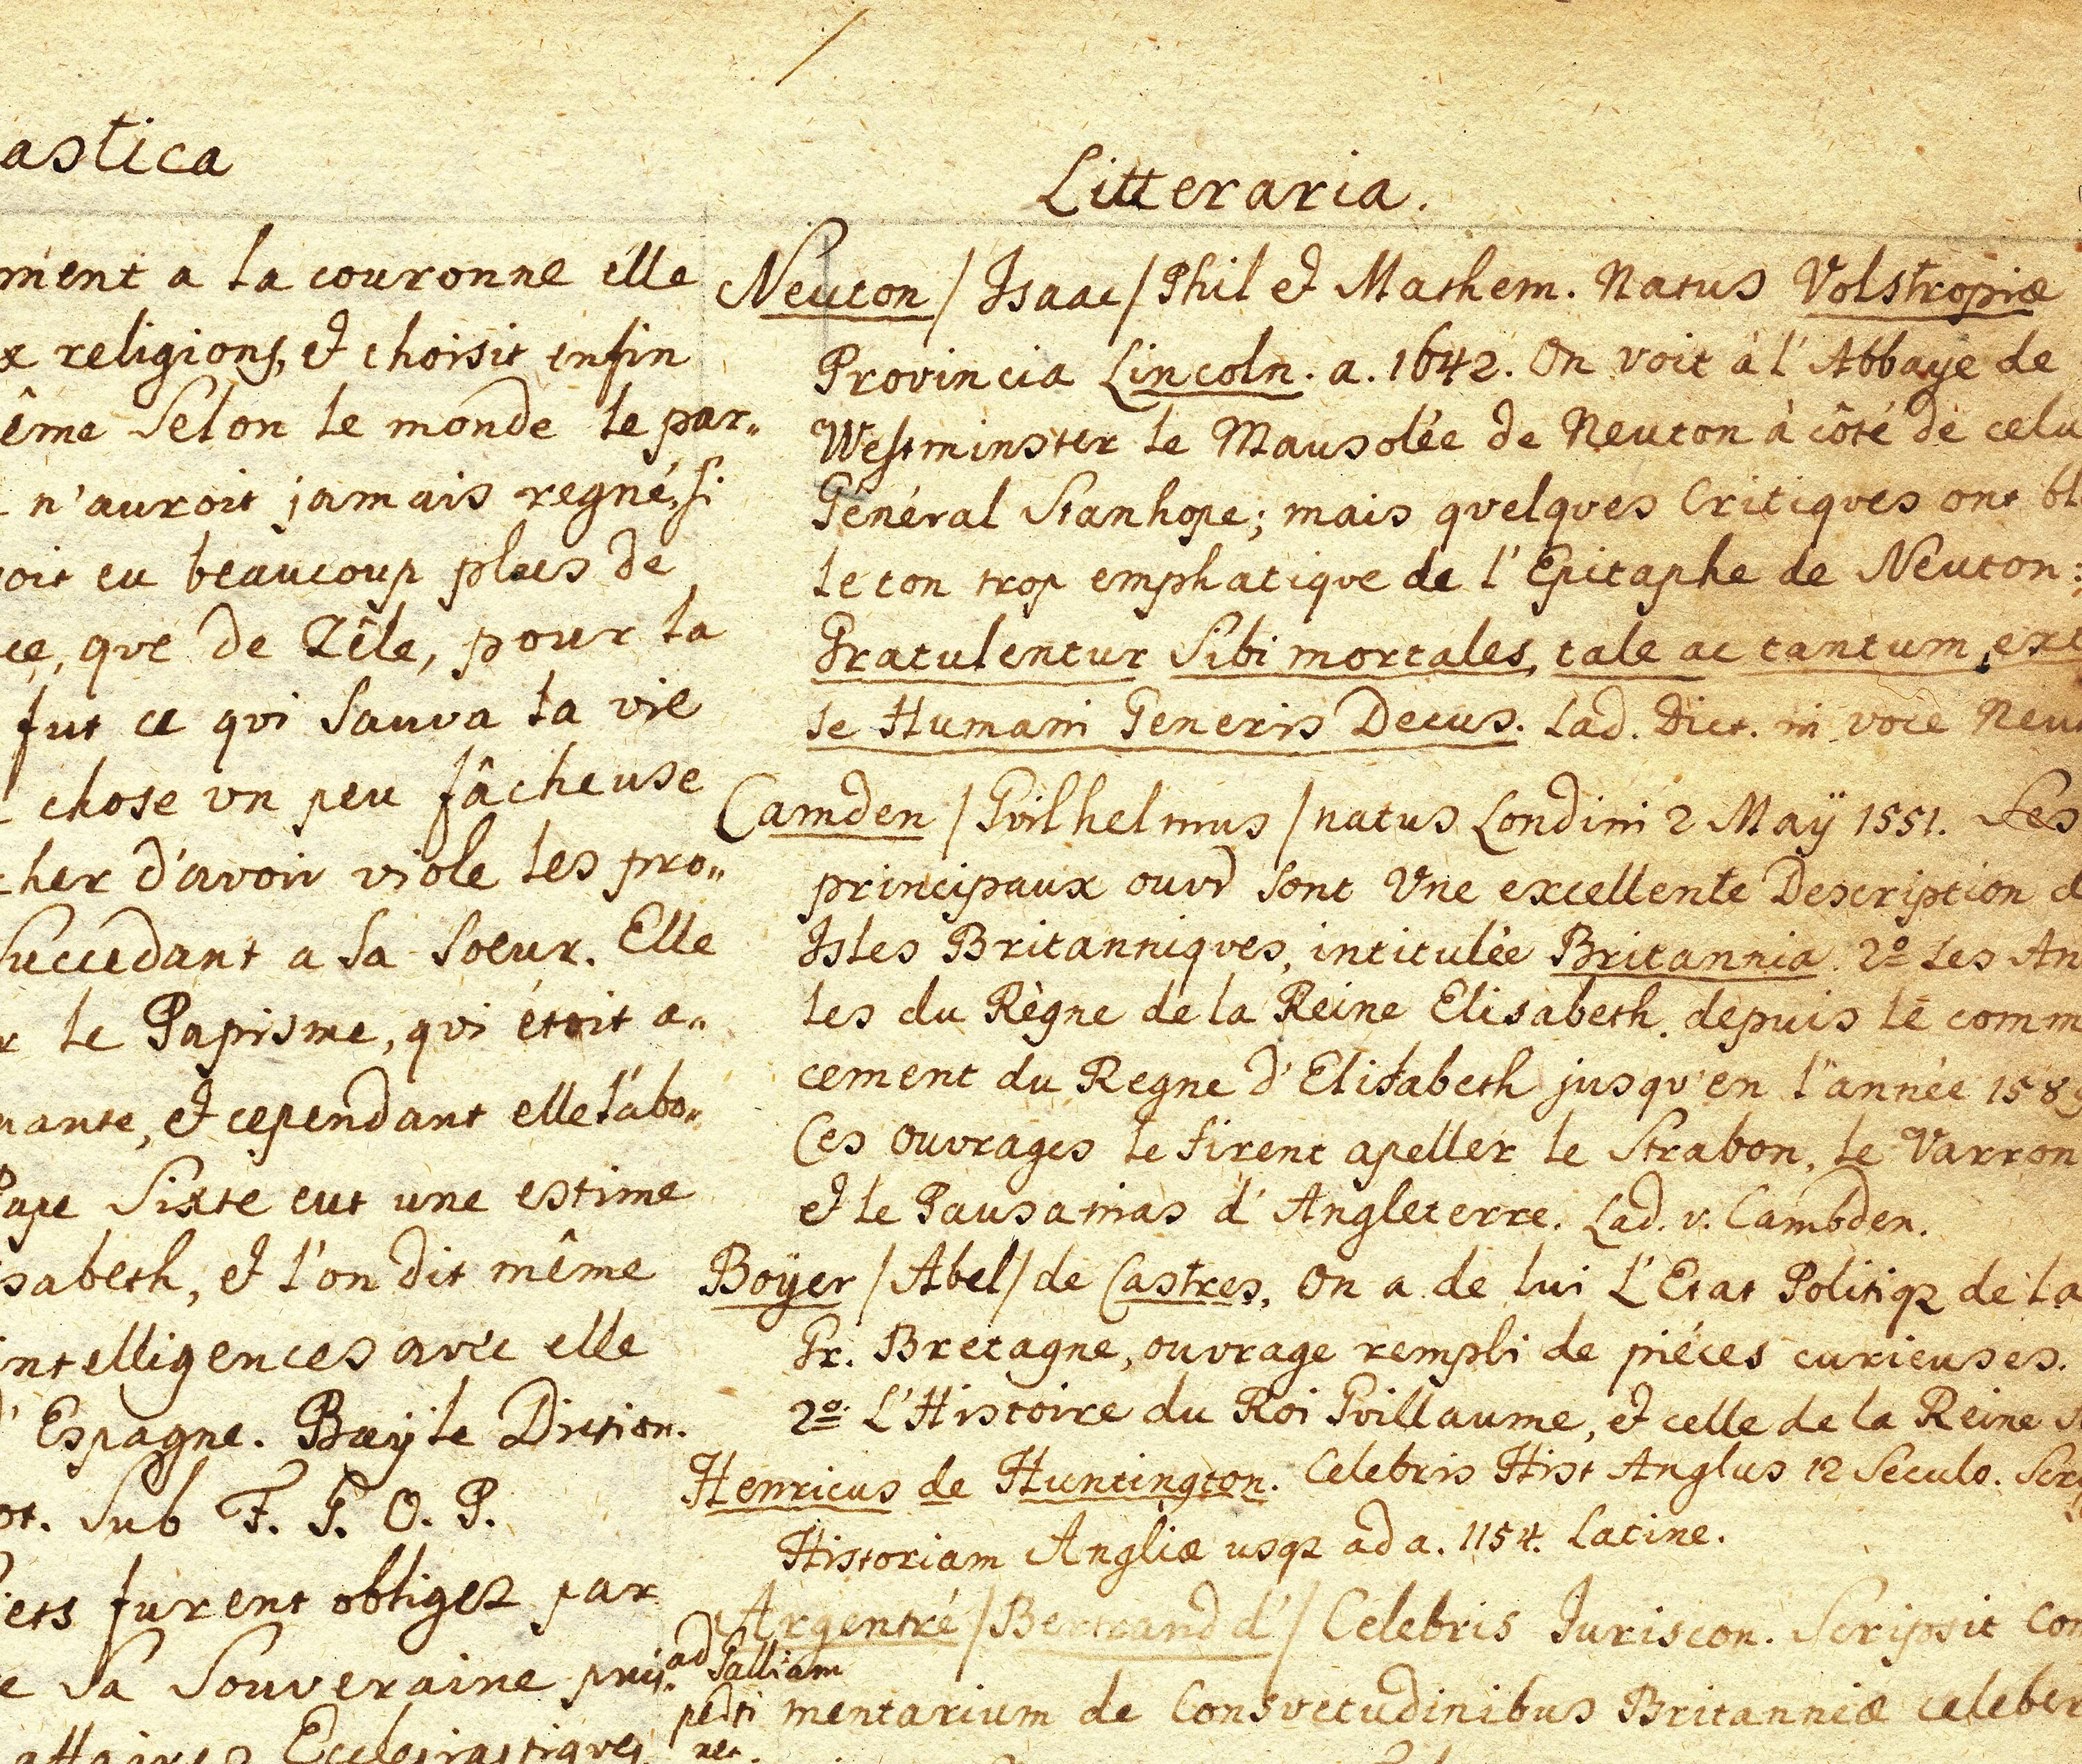 astica
ment a la couronne elle
x religions, et choisit enfin
ême Selon le monde le par„
n'auroit jamais regné, si
oit eu beaucoup plus de
ce, que de Zêle, pour la
fut ce qui Sauva la vie
chose un peu fâcheuse
cher d'avoir viole les pro„
Succedant a Sa Soeur. Elle
r le Papisme, qui étoit a„
nante, et cependant elle l'abo„
Pape Sixte eut une estime
sabeth, et l'on dit même
intelligences avec elle
d'Espagne. Bayle Diction.
ot. Sub F. G. O. P.
iets furent obligez par
e Sa Souveraine
affaires Ecclesiastiques
Litteraria.
Neuton / Isaac / Phil et Mathem. Natus Volstropiæ
Provincia Lincoln. a. 1642. On voit à l'Abbaye de
Westminster le Mausolée de Neuton à côté de celu
Général Stanhope; mais quelques Critiques ont bl
le ton trop emphatique de l'Epitaphe de Neuton:
Gratulentur Sibi mortales, tale ac tantum ext
se Humani Generis Decus. Lad. Dict. in voce Neu
Camden / Guilhelmus / natus Londini 2 Maÿ 1551. Ses
principaux ouvr sont Une excellente Description d
Isles Britanniques, intitulée Britannia. 2º Les An
les du Règne de la Reine Elisabeth. depuis le comm
cement du Regne d'Elisabeth jusqu'en l'année 1589
Ces ouvrages le firent apeller le Strabon, le Varron
et le Pausanias d'Angleterre. Lad. v. Cambden.
Boÿer / Abel / de Castres. On a de lui L'Etat Politiqz de la
Gr. Bretagne, ouvrage rempli de piéces curieuses.
2º. L'Histoire du Roi Guillaume, et celle de la Reine
Henricus de Huntington. Celebris Hist Anglus 12 Seculo. Scr
Historiam Angliæ usqz ad a. 1154. Latine.
Argentré / Bertrand d' / Celebris Juriscon. Scripsit Com
ad Galliam
mentarium de Consuetudinibus Britanniæ celeber
perti
net.